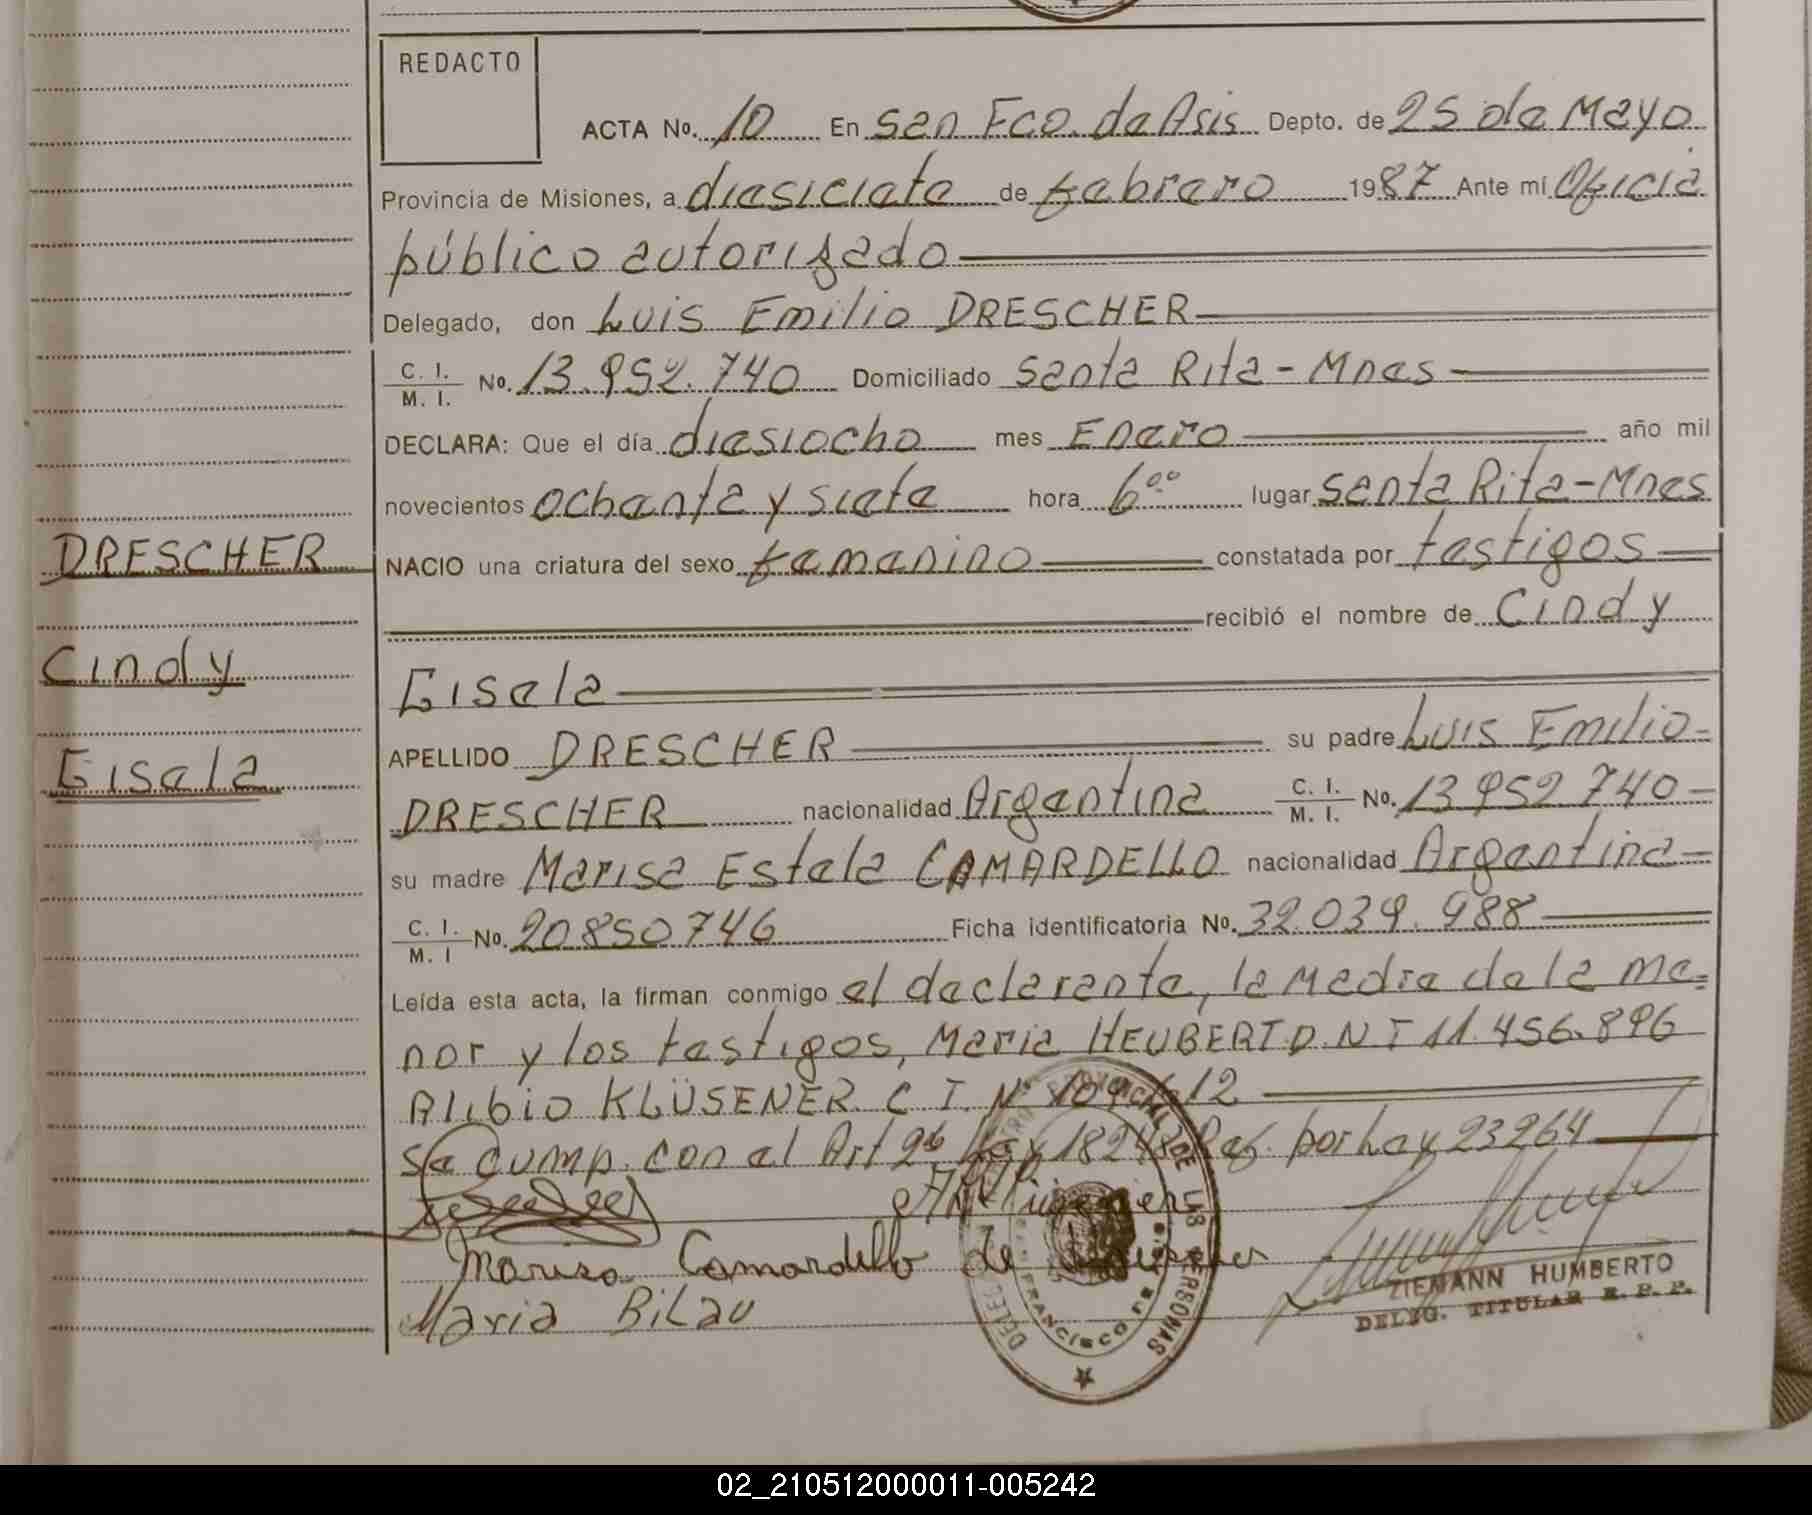 REDACTO
ACTA No. 10 En San Fco. de Asis Depto. de 25 de Mayo
Provincia de Misiones, a diesiciete de febrero 1987 Ante mí Oficia
público autorizado
Delegado, don Luis Emilio DRESCHER
C. I. / M. I. No. 13.952.740 Domiciliado Santa Rita - Mnes
DECLARA: Que el día diesiocho mes Enero año mil
novecientos ochenta y siete hora 6°° lugar Santa Rita - Mnes
DRESCHER
NACIO una criatura del sexo femenino constatada por testigos
recibió el nombre de Cindy
Cindy
Gisela
APELLIDO DRESCHER su padre Luis Emilio
Gisela
DRESCHER nacionalidad Argentina C. I. / M. I. No. 13 952 740
su madre Marisa Estela CAMARDELLO nacionalidad Argentina
C. I. / M. I No. 20850746 Ficha identificatoria No. 32.039.988
Leída esta acta, la firman conmigo el declarante, la Madre de la me=
nor y los testigos, Maria HEUBERT D.N I 11.456.896
Alibio KLÜSENER C I. N°
Se Cump. con el Art 2° Ley 18248 Ref. por Ley 23264
Marisa Camardello de
Maria Bilau
ZIEMANN HUMBERTO
DELEG. TITULAR R. P. P.
DE LAS PERSONAS
FRANCISCO DE
02_210512000011-005242